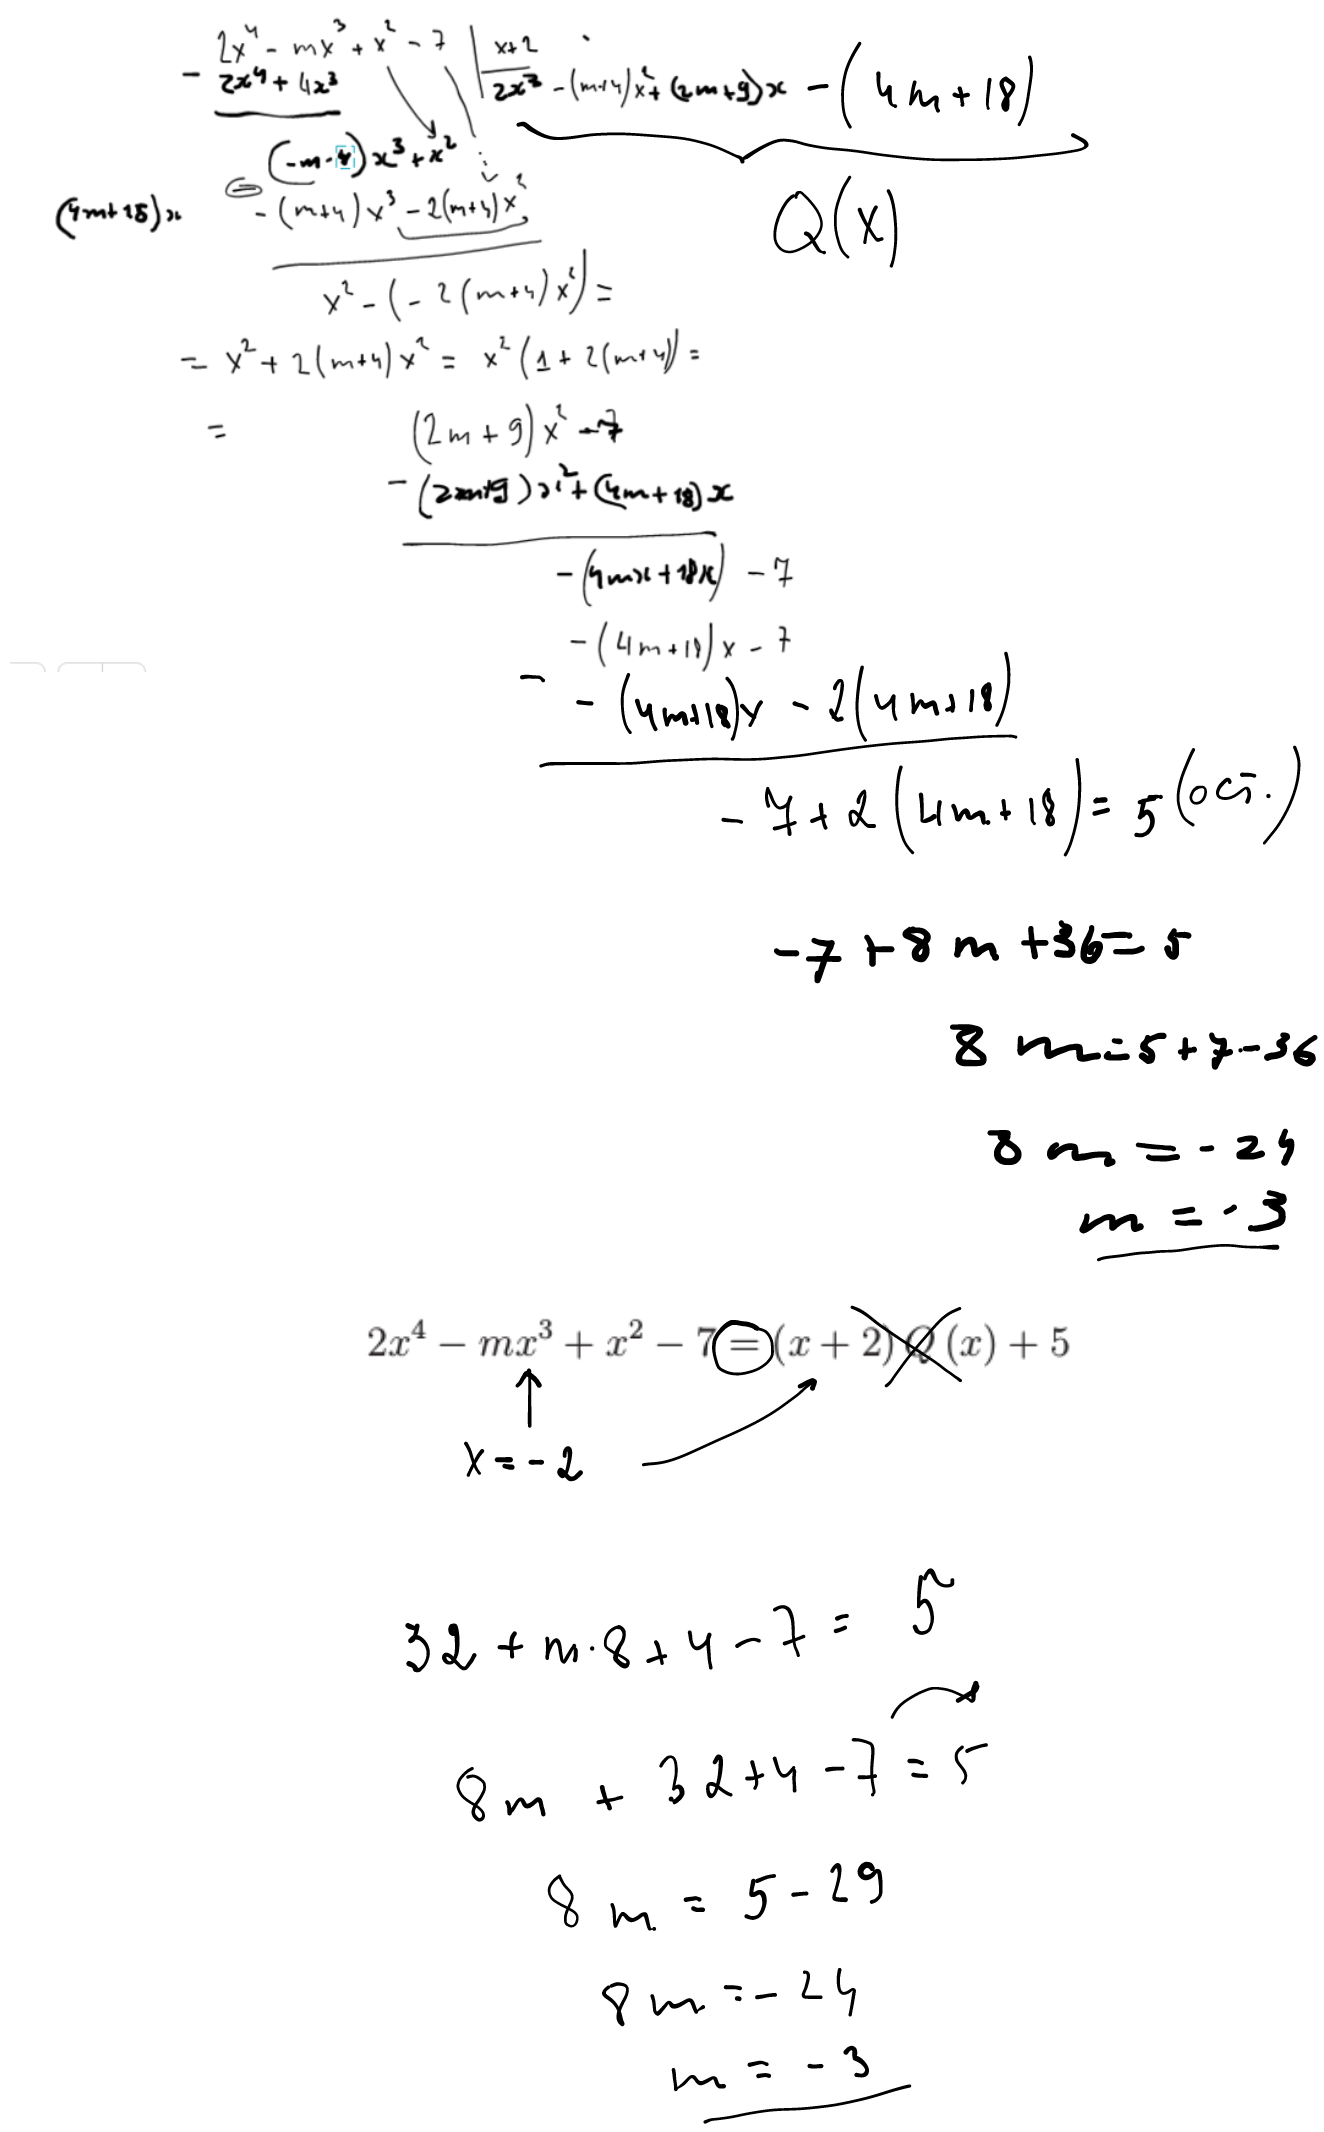 2x⁴ - mx³ + x² - 7 | x+2
- 2x⁴ + 4x³ | 2x³ - (m+4)x² + (2m+9)x - (4m+18)
(-m-4)x³ + x²
Q(x)
(4m+18)x
- (m+4)x³ - 2(m+4)x²
x² - (-2(m+4)x²) =
= x² + 2(m+4)x² = x²(1 + 2(m+4)) =
= (2m+9)x² - 7
- (2m+9)x² + (4m+18)x
- (4mx + 18x) - 7
- (4m+18)x - 7
- - (4m+18)x - 2(4m+18)
- 7 + 2(4m+18) = 5 (ост.)
-7 + 8m + 36 = 5
8m = 5 + 7 - 36
8m = -24
m = -3
2x⁴ − mx³ + x² − 7 = (x + 2)Q(x) + 5
x = -2
32 + m·8 + 4 - 7 = 5
8m + 32 + 4 - 7 = 5
8m = 5 - 29
8m = -24
m = -3